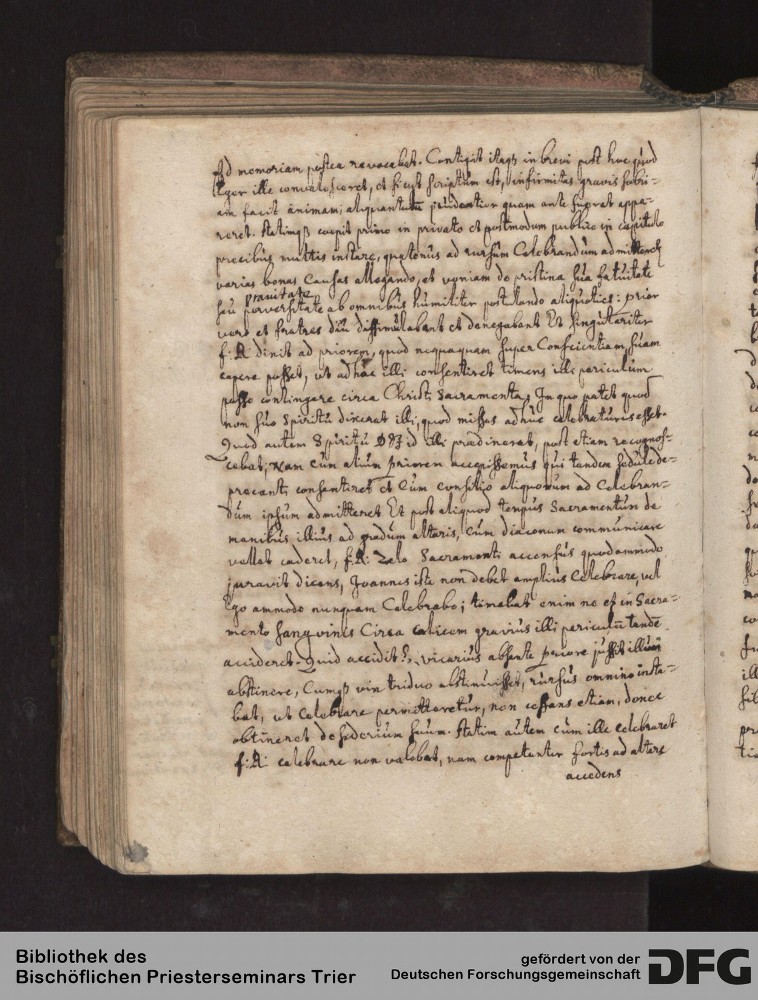 Ad memoriam postea revocabat. Contigit itaqz in brevi post hoc quod
Eger ille convalesceret, et sicut scriptum est, infirmitas gravis sobri-
am facit animam; aliquantulu prudentior quam ante fuerat appa-
reret. statimqz coepit primo in privato et postmodum publice in capitulo
precibus multis instare, quatenus ad rursum Celebrandum admitteret
varias bonas Causas allegando, et veniam de pristina sua fatuitate
pravitate
seu perversitate ab omnibus humiliter postulando aliquoties: prior
vero et fratres diu dissimulabant et denegabant Et singulariter
f: R dixit ad priorem, quod nequaquam super Conscientiam suam
capere posset, ut adhuc illi consentiret timens illi periculum
posse contingere circa Christi Sacramenta, In quo patet quod
non suo Spiritu dixerat illi, quod missas adhuc celebraturus esset.
Quod autem Spiritu DEI id illi praedixerat, post etiam recognos-
cebat, nam Cum alium priorem accepissemus qui tandem sedule de-
precanti consentiret et Cum consilio aliquorum ad Celebran-
dum ipsum admitteret Et post aliquod tempus Sacramentum de
manibus illius ad gradum altaris, Cum diaconum communicare
vellet caderet, f: R: Zelo Sacramenti accensus quodammodo
juravit dicens, Joannes iste non debet amplius Celebrare, vel
Ego ammodo nunquam Celebrabo; timebat enim ne et in Sacra-
mento Sanguinis Circa calicem gravius illi periculu tande
accideret. Quid accidit? vicarius absente priore jussit illum
abstinere, Cumqz vix triduo abstinuisset, rursus omnino insta-
bat, ut Celebrare permitteretur, non cessans etiam, donec
obtineret desiderium suum. statim autem cum ille celebraret
f: R: celebrare non valebat, nam competenter fortis ad altare
accedens
Bibliothek des
Bischöflichen Priesterseminars Trier
gefördert von der
Deutschen Forschungsgemeinschaft
DFG